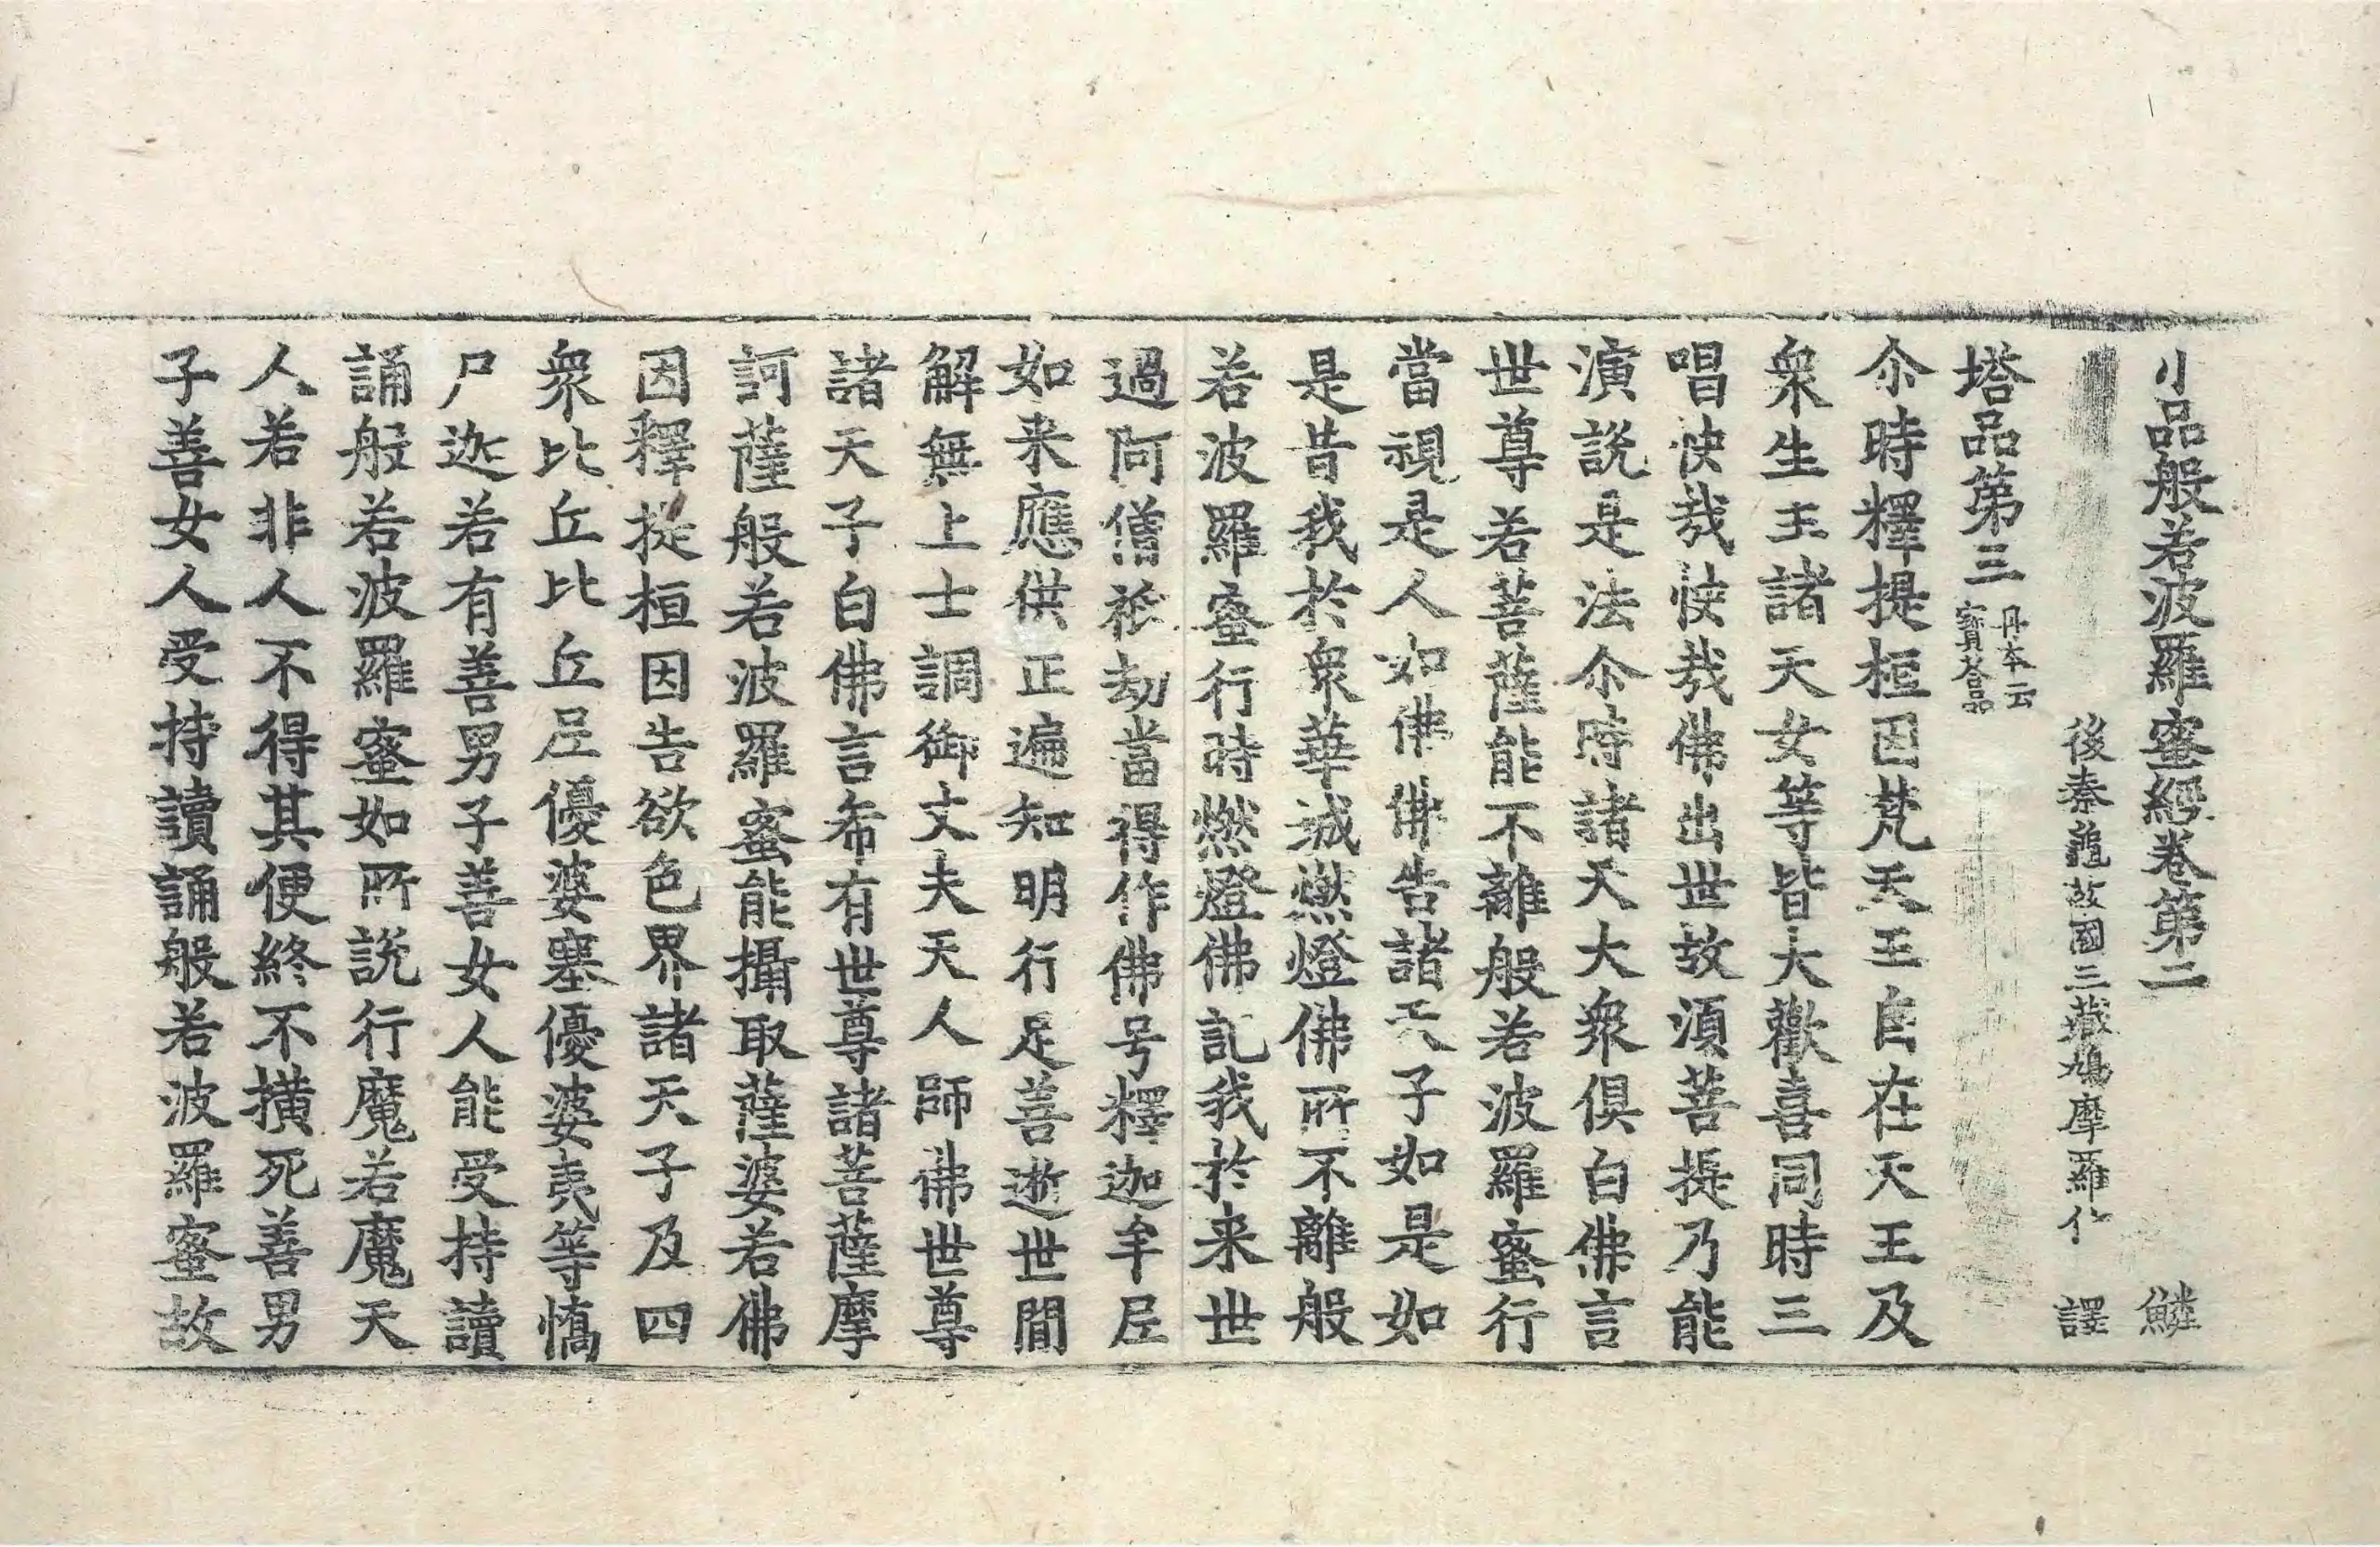 小品般若波羅蜜經卷第二 鱗
後秦龜茲國三藏鳩摩羅什 譯
塔品第三 丹本云寶塔品
尒時釋提桓因梵天王自在天王及
衆生主諸天女等皆大歡喜同時三
唱快哉快哉佛出世故須菩提乃能
演說是法尒時諸天大衆俱白佛言
世尊若菩薩能不離般若波羅蜜行
當視是人如佛佛告諸天子如是如
是昔我於衆華城燃燈佛所不離般
若波羅蜜行時燃燈佛記我於来世
過阿僧祇劫當得作佛号釋迦牟𡰱
如来應供正遍知明行足善逝世間
解無上士調御丈夫天人師佛世尊
諸天子白佛言希有世尊諸菩薩摩
訶薩般若波羅蜜能攝取薩婆若佛
因釋提桓因告欲色界諸天子及四
衆比丘比丘𡰱優婆塞優婆夷等憍
尸迦若有善男子善女人能受持讀
誦般若波羅蜜如所說行魔若魔天
人若非人不得其便終不橫死善男
子善女人受持讀誦般若波羅蜜故